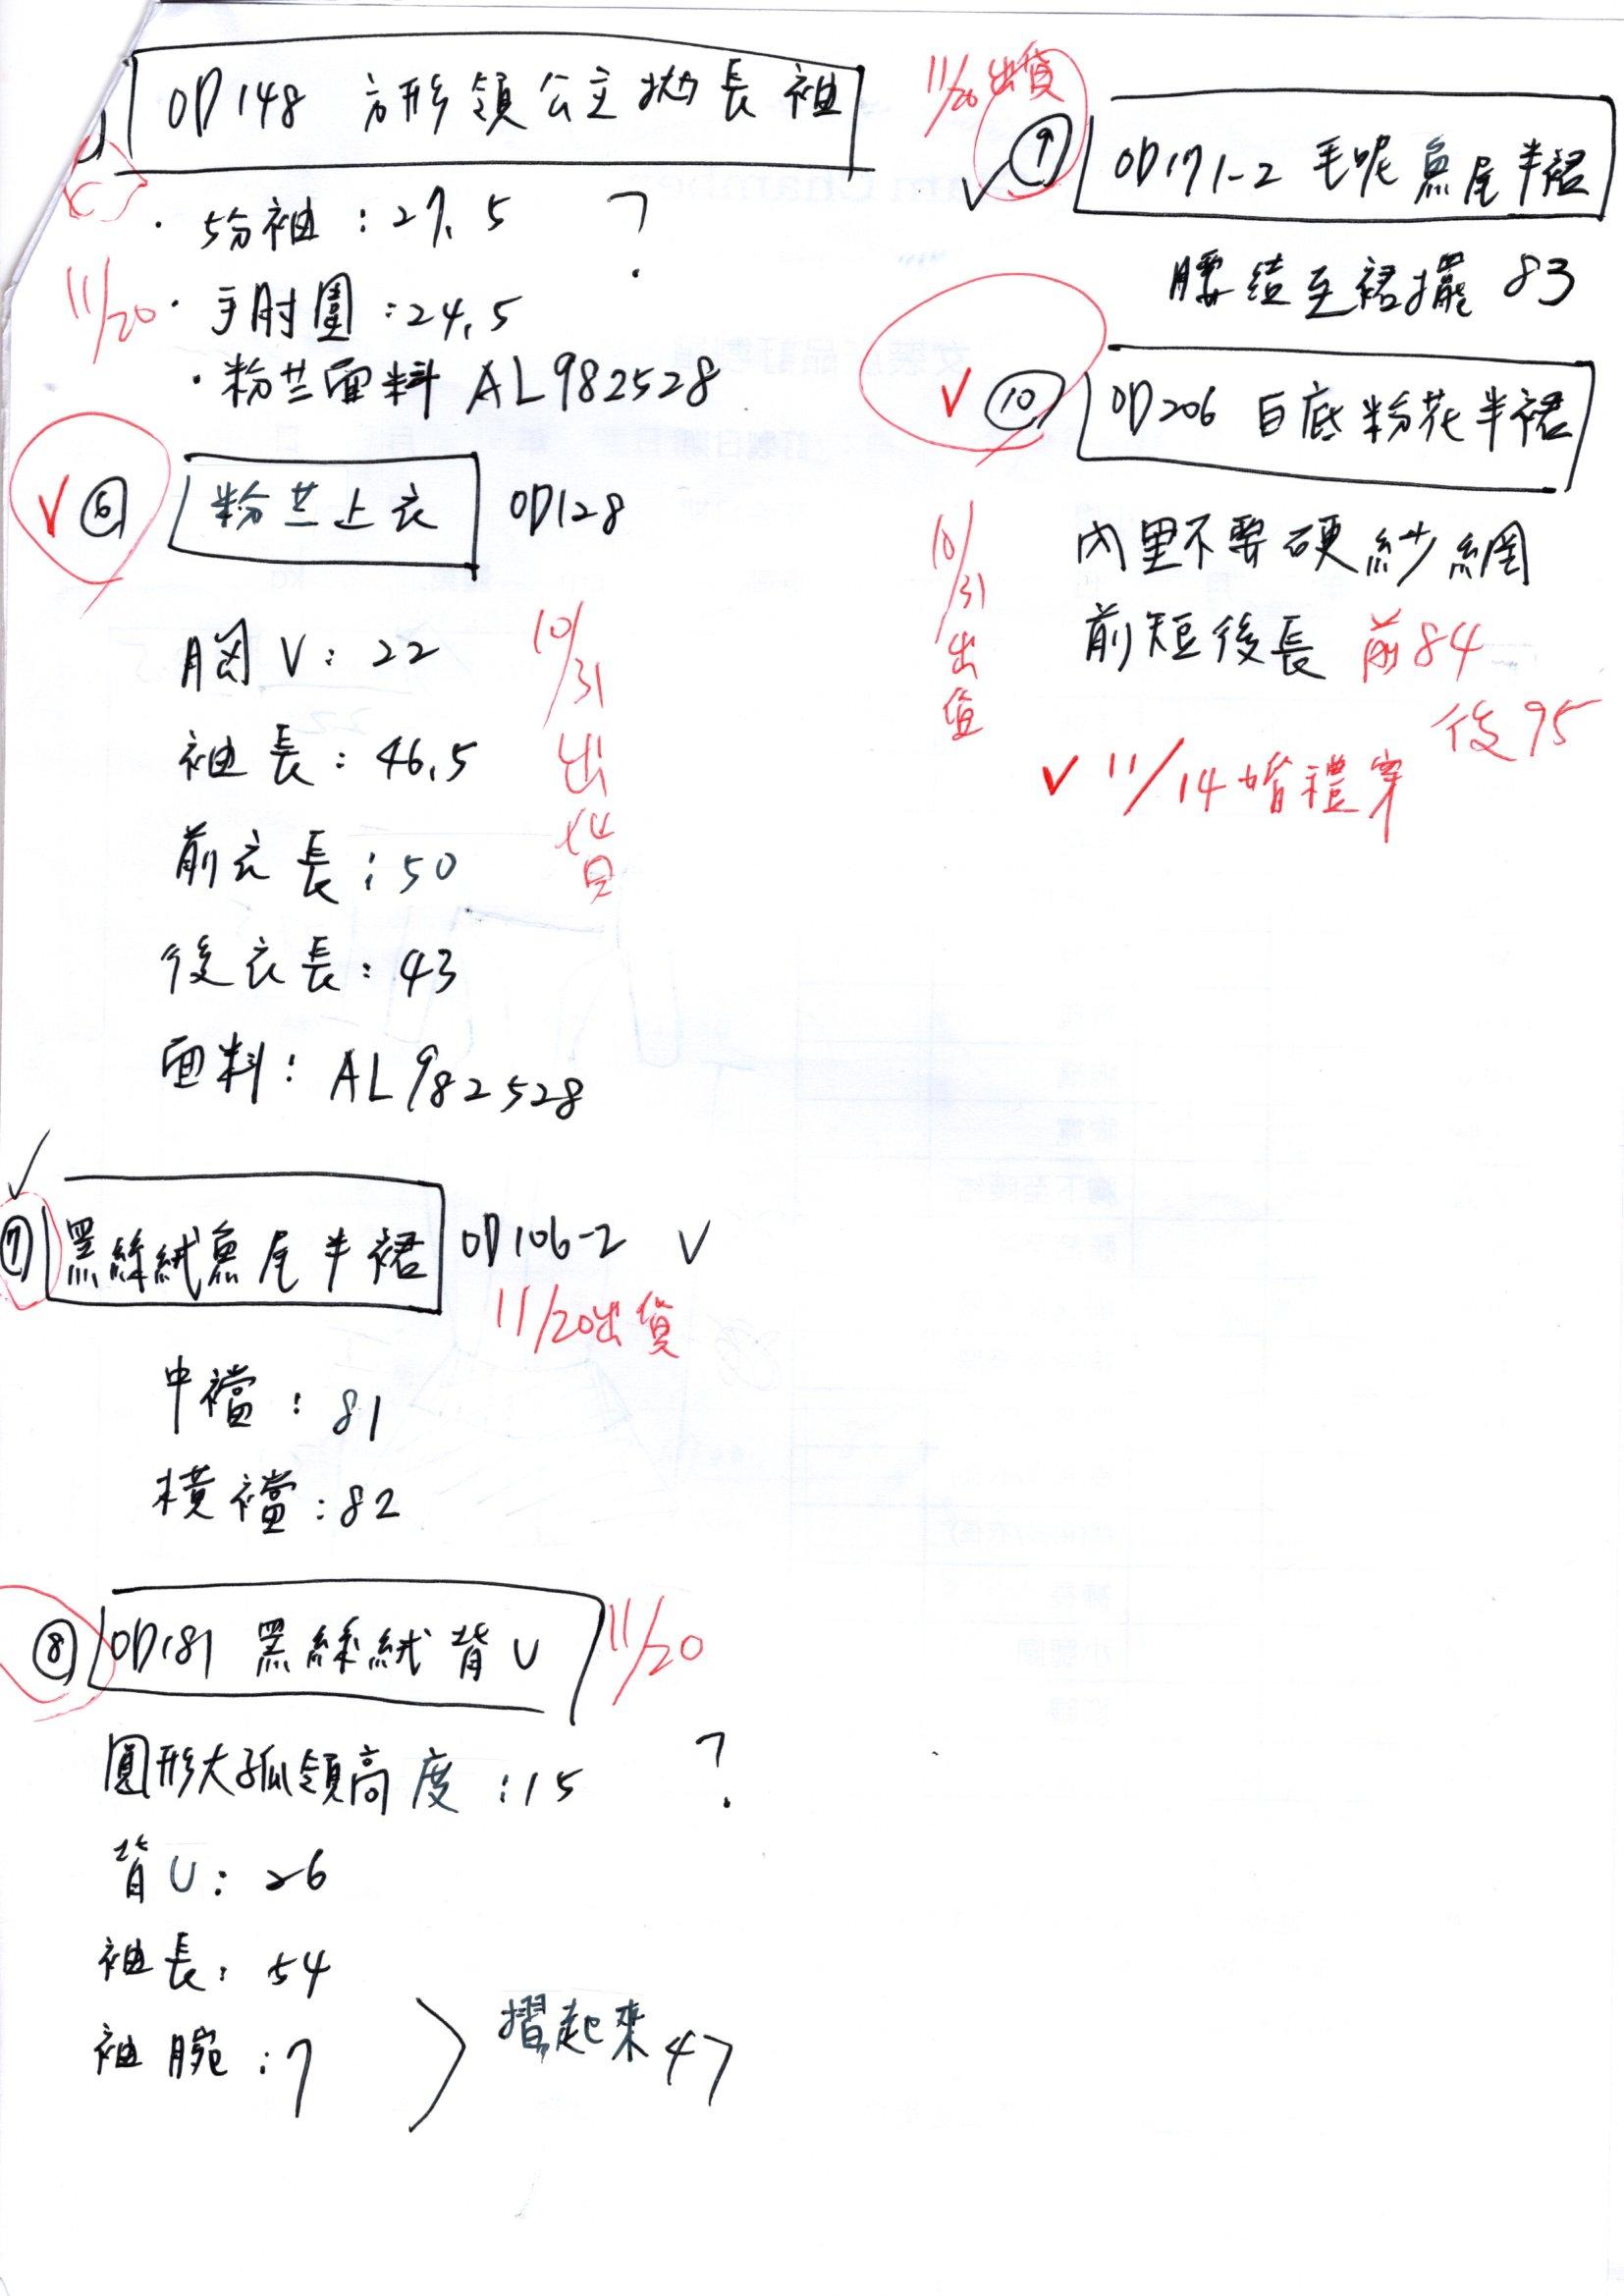 OD148 方形領公主拋長袖
· 5分袖：27.5 ?
11/20
· 手肘圍：24.5
· 粉芸面料 AL982528
✓ ⑥ 粉芸上衣 OD128
10/31 出貨
胸V：22
袖長：46.5
前衣長：50
後衣長：43
面料：AL982528
✓
⑦ 黑絲絨魚尾半裙 OD106-2 ✓
11/20出貨
中襠：81
橫襠：82
⑧ OD181 黑絲絨背U 11/20
圓形大孤領高度：15 ?
背U：26
袖長：54
袖腕：7
摺起來47
11/20 出貨
✓ ⑨ OD171-2 毛呢魚尾半裙
腰結至裙擺 83
✓ ⑩ OD206 白底粉花半裙
10/31 出貨
內里不要硬紗網
前短後長 前84
後95
✓ 11/14婚禮穿